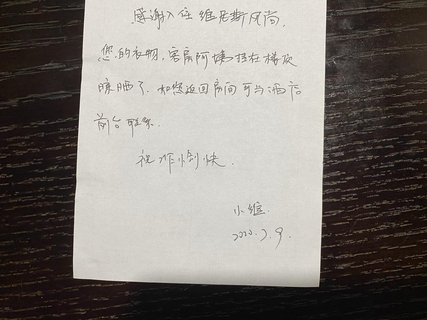 感谢入住维尼斯风尚,
您的衣物,客房阿姨挂在楼顶
晾晒了.如您返回房间可与酒店
前台联系.
祝作愉快.
小维
2020.7.9.